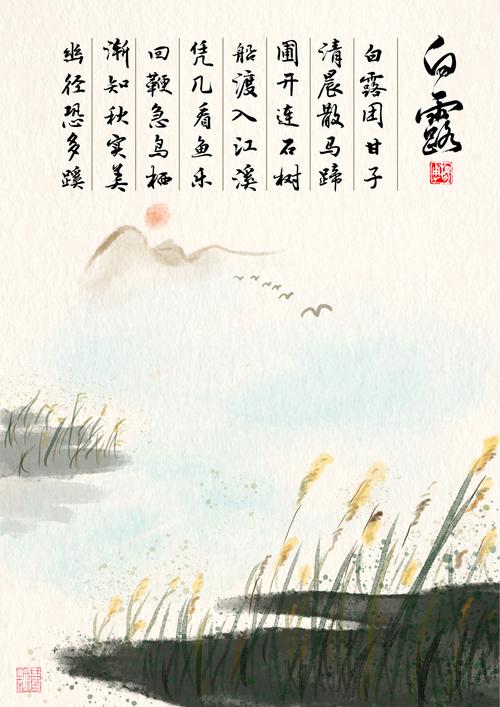 白露
白露团甘子
清晨散马蹄
圃开连石树
船渡入江溪
凭几看鱼乐
回鞭急鸟栖
渐知秋实美
幽径恐多蹊